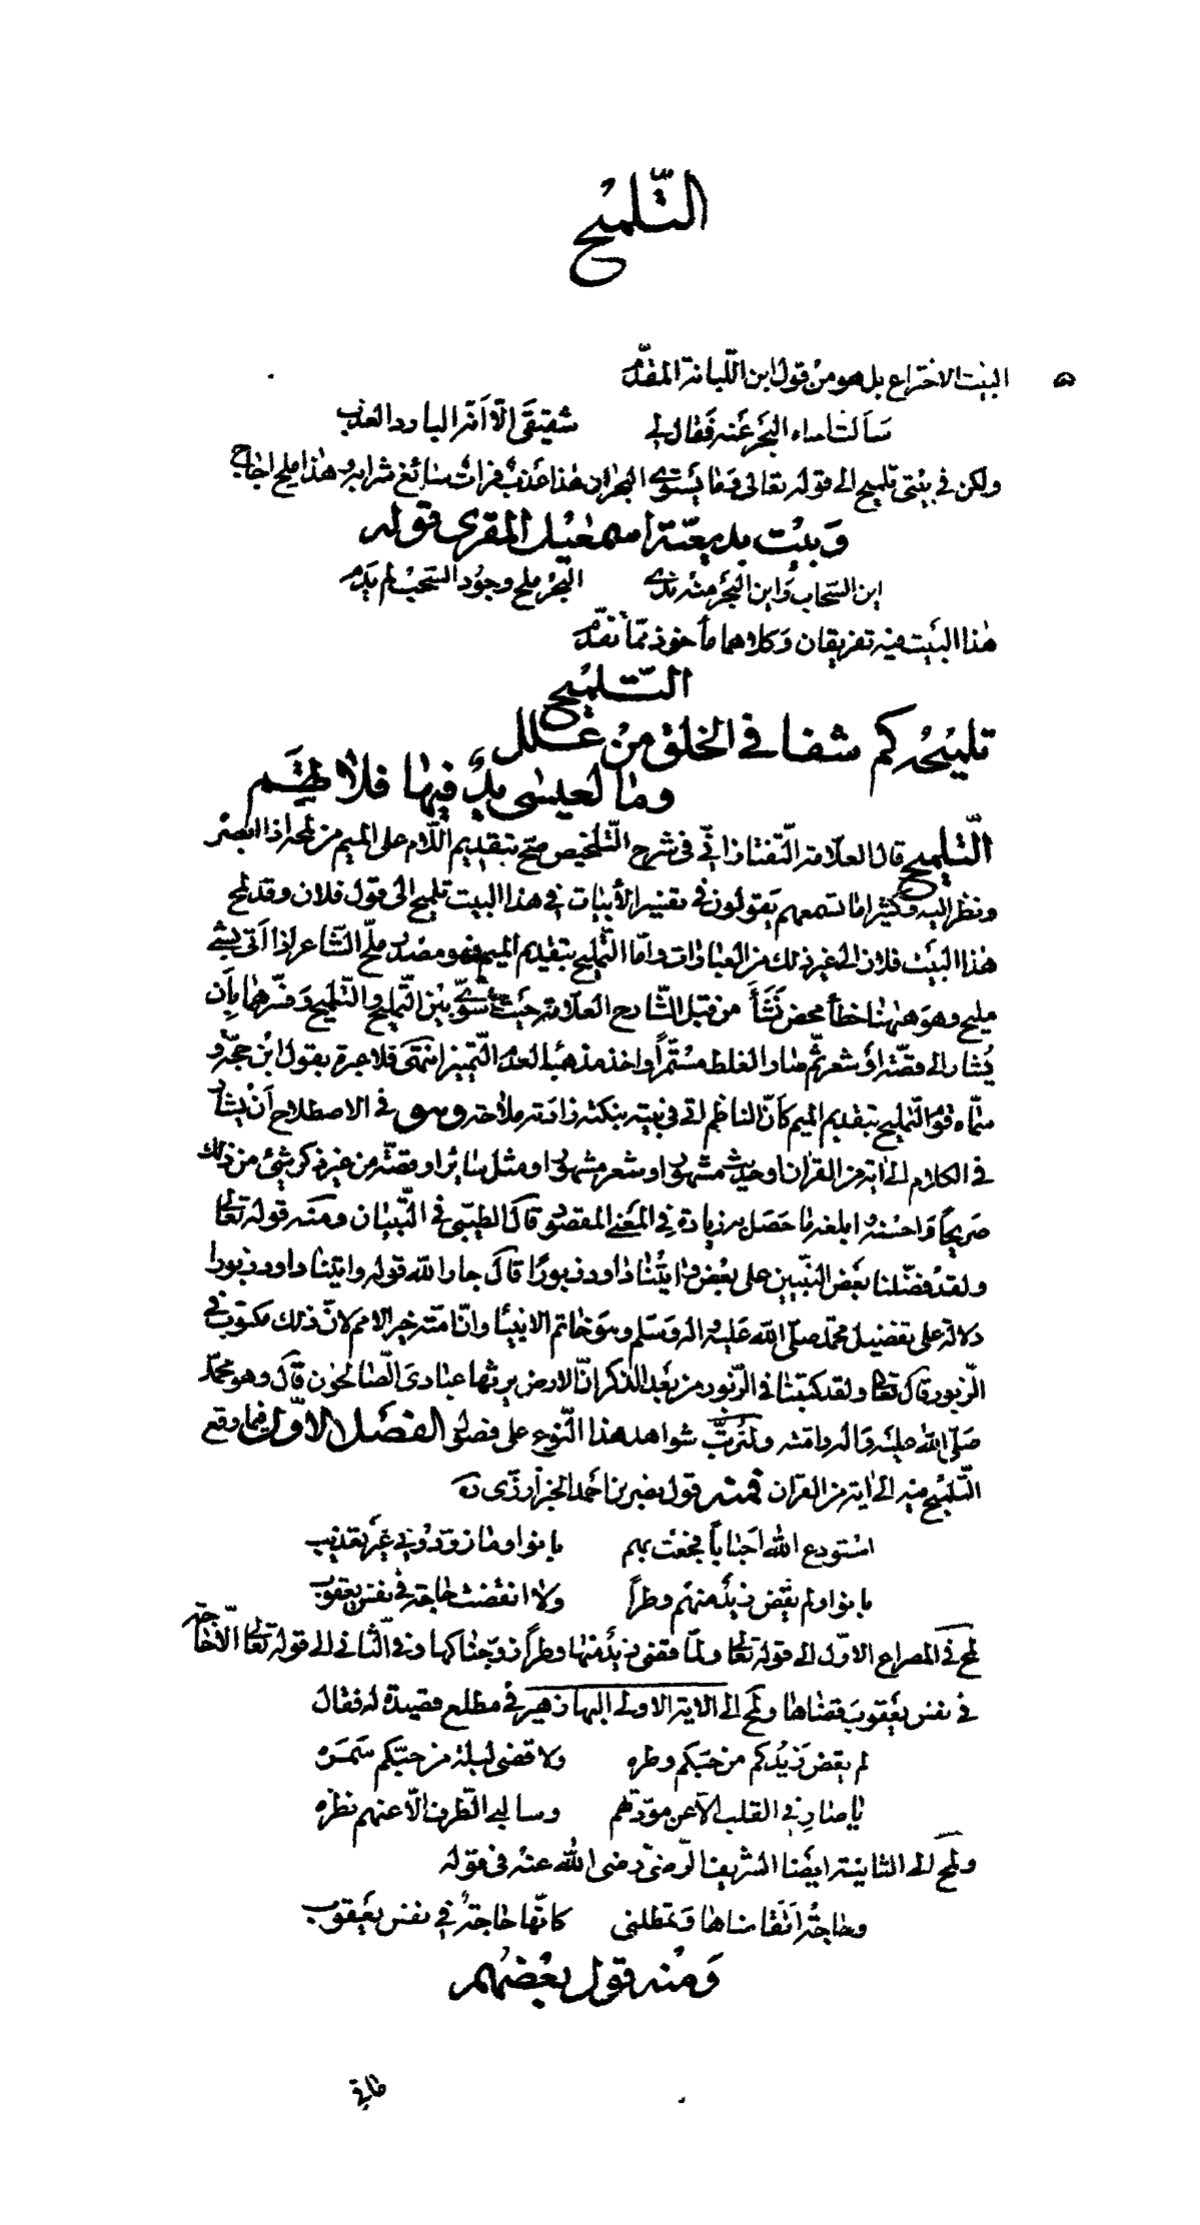 التّلميح
البيت الاختراع بل هو من قول ابن اللّبانة المقدّم
سألت اماه البحر عنه فقال لي شقيقي الّا انّه البارد العذب
ولكن في بيتي تلميح الى قوله تعالى وما يستوي البحران هذا عذب فرات سائغ شرابه وهذا ملح اجاج
وبيت بديعيّة اسمعيل المقري قوله
اين السّحاب واين البحر منه ندى البحر ملح وجود السّحب لم يدم
هذا البيت فيه تفريقان وكلاهما مأخوذ ممّا تقدّم
التّلميح
تلميحه كم شفا في الخلق من علل
وما لعيسى يدٌ فيها فلا تهم
التّلميح قال العلّامة التّفتازانيّ في شرح التّلخيص صحّ بتقديم اللّام على الميم من لمحه اذا ابصره
ونظر اليه وكثيرا ما تسمعهم يقولون في تفسير الأبيات في هذا البيت تلميح الى قول فلان وقد لمح
هذا البيت فلان الى غير ذلك من العبارات وامّا التّمليح بتقديم الميم فهو مصدر ملّح الشّاعر اذا اتى بشيء
مليح وهو ههنا خطأ محض نشأ من قبل الشّارح العلّامة حيث سوّى بين التّمليح والتّلميح وفسّرهما بأن
يشار الى قصّة او شعر ثمّ صار الغلط مستمرّاً واخذ مذهبا لعدم التّمييز انتهى فلا عبرة بقول ابن حجّة و
سمّاه قوم التّمليح بتقديم الميم كأنّ الناظم اتى في بيته بنكتة زادته ملاحة وهو في الاصطلاح أن يشار
في الكلام الى اية من القران او حديث مشهور او شعر مشهور او مثل سائر او قصّة من غير ذكر شيء من ذلك
صريحاً واحسنه وابلغه ما حصل به زيادة في المعنى المقصود قال الطيبي في التّبيان ومنه قوله تعالى
ولقد فضّلنا بعض النّبيّين على بعض واتينا داود زبورًا قال جار الله قوله واتينا داود زبورا
دلالة على تفضيل محمّد صلّى الله عليه واله وسلّم وهو خاتم الانبياء وانّ امّته خير الامم لانّ ذلك مكتوب في
الزّبور قال تعالى ولقد كتبنا في الزّبور من بعد الذكر انّ الارض يرثها عبادي الصّالحون قال وهو محمّد
صلّى الله عليه واله وامّته ولنرتّب شواهد هذا النّوع على فصول الفصل الاوّل فيما وقع
التّلميح فيه الى اية من القران فمنه قول نصر بن احمد الخبز أرزّي
استودع الله احباباً فجعت بهم بانوا وما زوّدوني غير تعذيب
بانوا ولم يقض زيد منهم وطراً ولا انقضت حاجة في نفس يعقوب
لمح في المصراع الاوّل الى قوله تعالى ولمّا قضى زيد منها وطراً زوّجناكها وفي الثّاني الى قوله تعالى الّا حاجة
في نفس يعقوب قضاها ولمح الى الاية الاولى البهاء زهير في مطلع قصيدة له فقال
لم يقض زيدكم من حبّكم وطره ولا قضى ليله من حبّكم سمره
يا صارفي القلب الّا عن مودّتهم وسالبي الطّرف الّا عنهم نظره
ولمح الى الثانية ايضا الشريف الرّضيّ رضى الله عنه في قوله
وحاجة اتقاضاها وتمطلني كانّها حاجة في نفس يعقوب
ومنه قول بعضهم